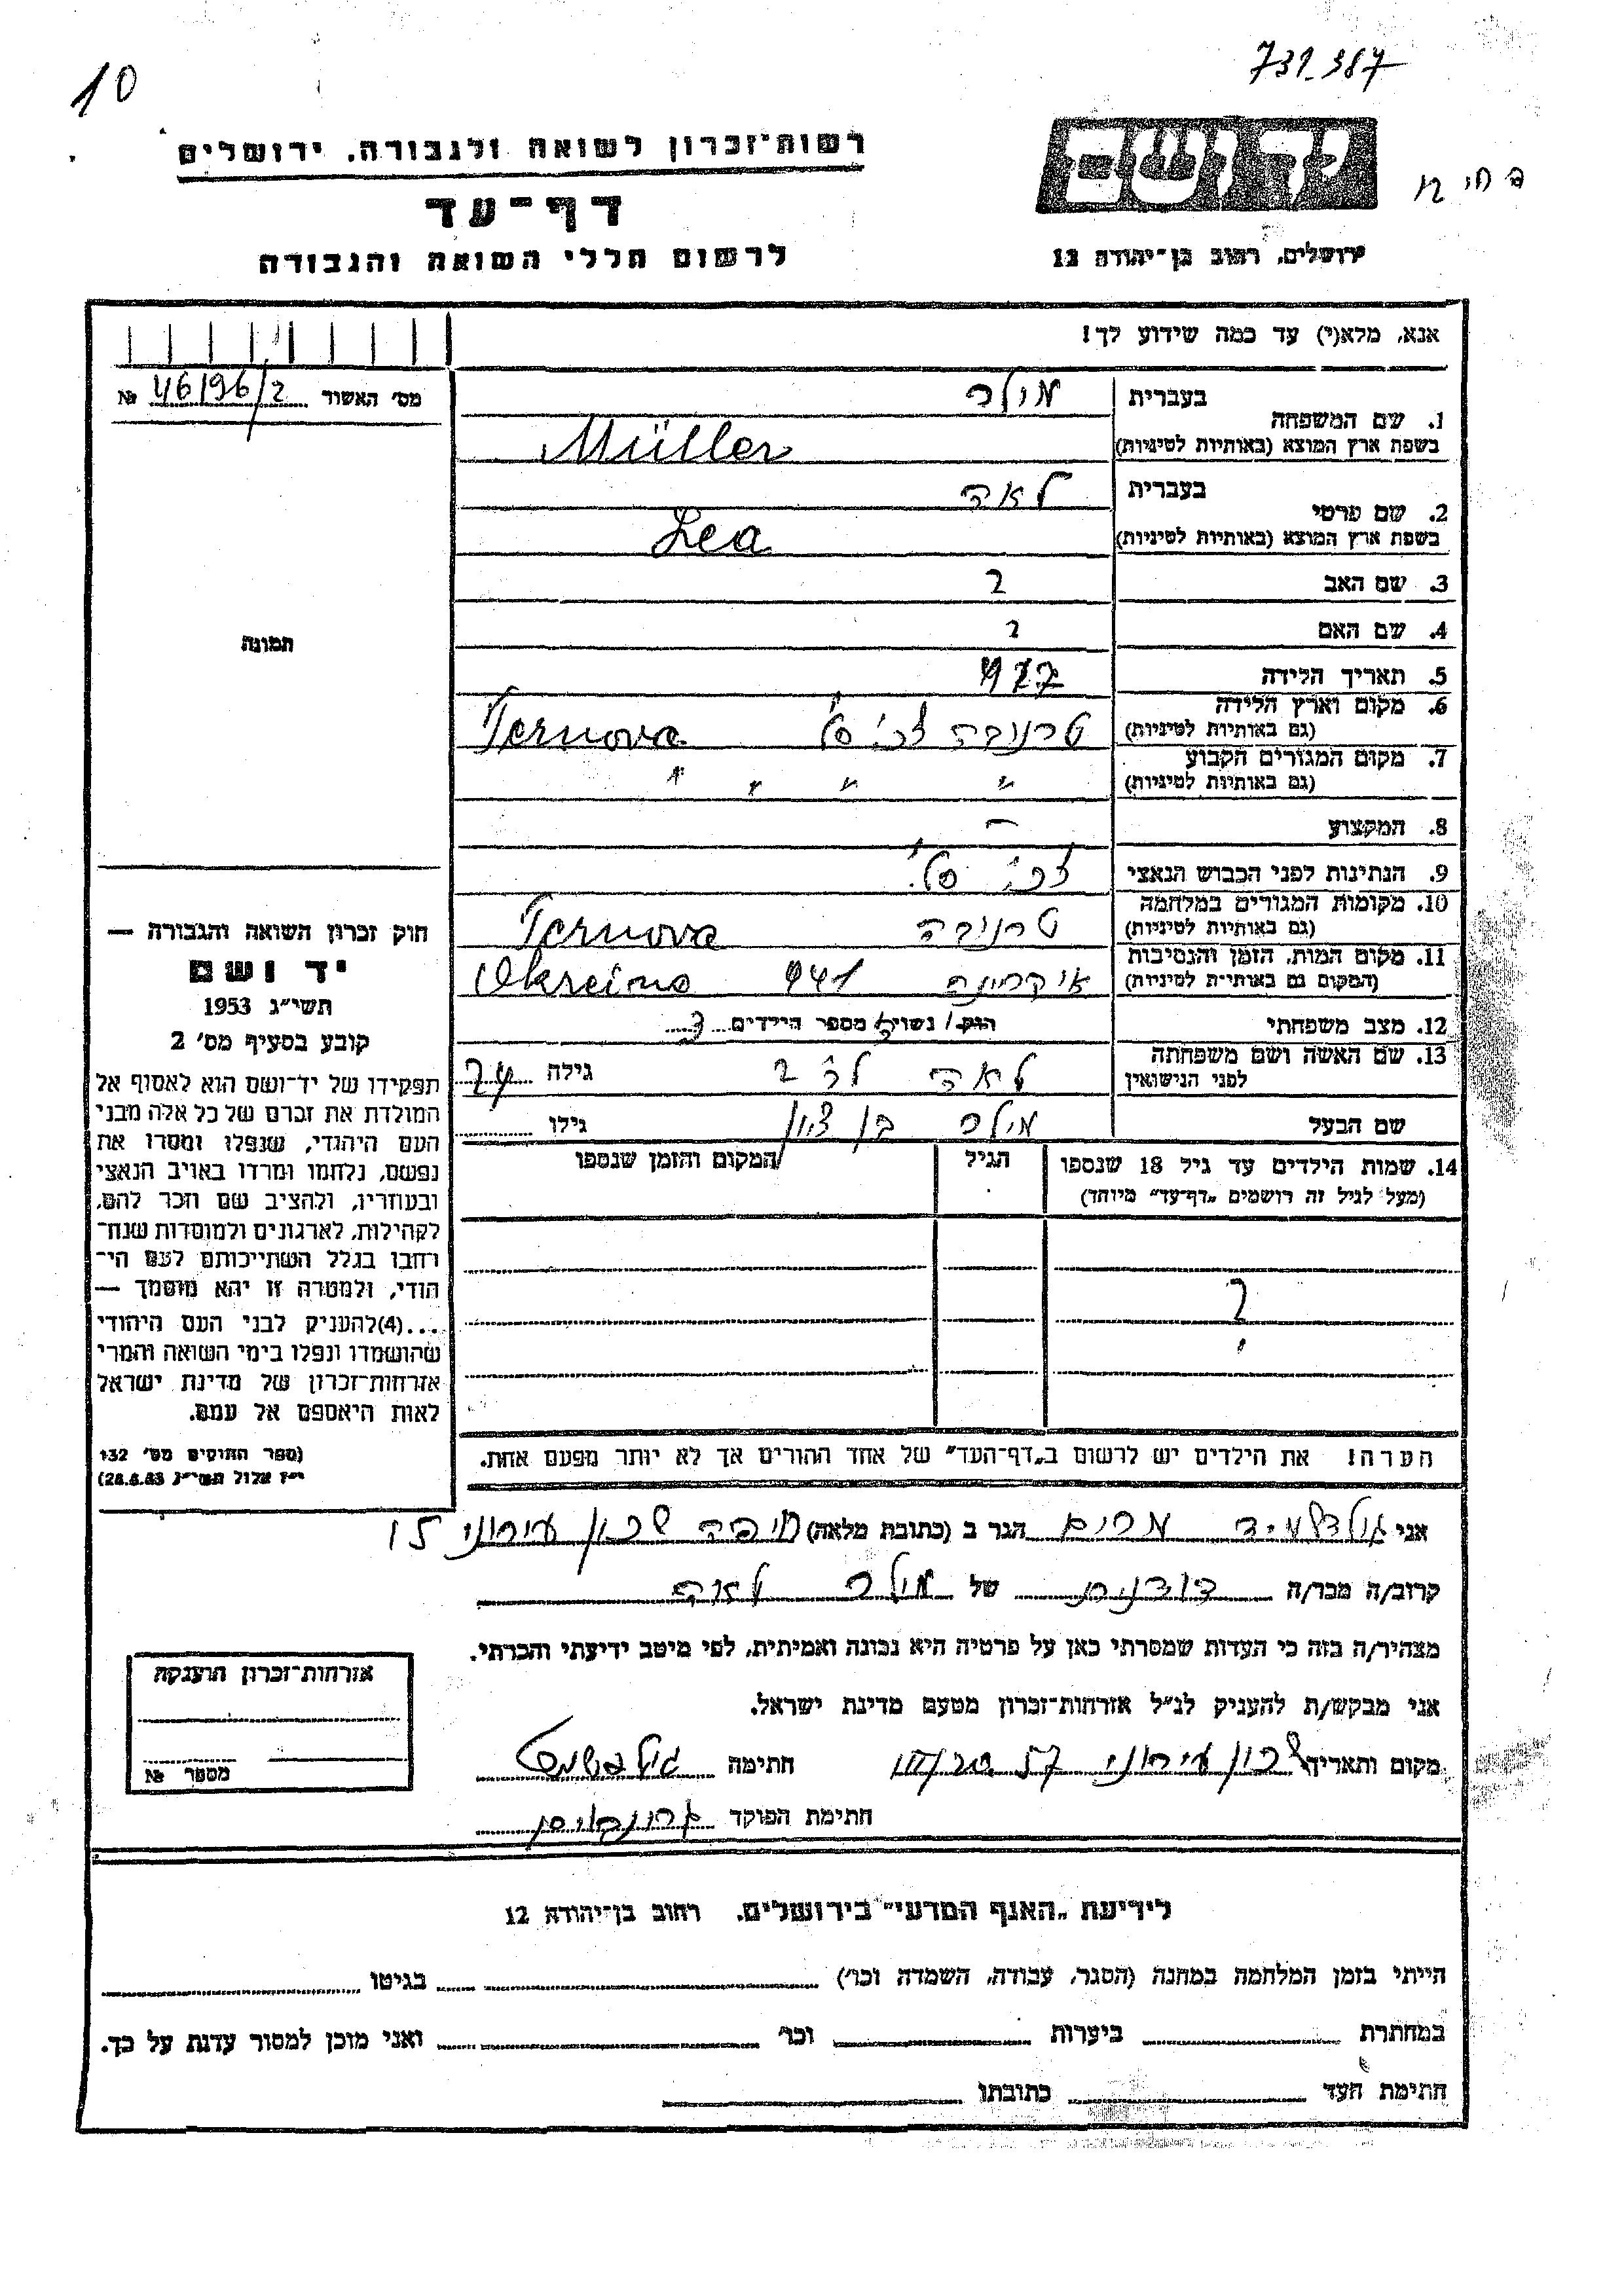 10
731_387
רשות־זכרון לשואה ולגבורה, ירושלים
דף־עד
לרשום חללי השואה והגבורה
ירושלים, רחוב בן־יהודה 12
אנא, מלא(י) עד כמה שידוע לך!
מס׳ האשור 46196/2 №
תמונה
1. שם המשפחה בעברית מולר
בשפת ארץ המוצא (באותיות לטיניות) Müller
2. שם פרטי בעברית לאה
בשפת ארץ המוצא (באותיות לטיניות) Lea
3. שם האב ?
4. שם האם ?
5. תאריך הלידה 917
6. מקום וארץ הלידה (גם באותיות לטיניות) טרנובה צ׳כ׳ סל׳ Ternova
7. מקום המגורים הקבוע (גם באותיות לטיניות) " " " "
8. המקצוע —
9. הנתינות לפני הכבוש הנאצי צ׳כ׳ סל׳
10. מקומות המגורים במלחמה (גם באותיות לטיניות) טרנובה Ternova
11. מקום המות, הזמן והנסיבות (המקום גם באותיות לטיניות) אוקרינה 941 Ukreina
12. מצב משפחתי רווק / נשוי/אה מספר הילדים 3
13. שם האשה ושם משפחתה לפני הנישואין לאה גילה 24
שם הבעל מולר בן ציון גילו
14. שמות הילדים עד גיל 18 שנספו הגיל המקום והזמן שנספו
(מעל לגיל זה רושמים „דף־עד" מיוחד)
?
הערה! את הילדים יש לרשום ב„דף־העד" של אחד ההורים אך לא יותר מפעם אחת.
חוק זכרון השואה והגבורה —
יד ושם
תשי״ג 1953
קובע בסעיף מס׳ 2
תפקידו של יד־ושם הוא לאסוף אל
המולדת את זכרם של כל אלה מבני
העם היהודי, שנפלו ומסרו את
נפשם, נלחמו ומרדו באויב הנאצי
ובעוזריו, ולהציב שם וזכר להם,
לקהילות, לארגונים ולמוסדות שנח־
רבו בגלל השתייכותם לעם הי־
הודי, ולמטרה זו יהא מוסמך —
...(4)להעניק לבני העם היהודי
שהושמדו ונפלו בימי השואה והמרי
אזרחות־זכרון של מדינת ישראל
לאות היאספם אל עמם.
(ספר החוקים מס׳ 132
י״ז אלול תשי״ג 28.8.53)
אני גולדשמיד מרים הגר ב (כתובת מלאה) חדרה שכון עירוני 15
קרוב/ה מכר/ה דודנית של מולר לאה
מצהיר/ה בזה כי העדות שמסרתי כאן על פרטיה היא נכונה ואמיתית, לפי מיטב ידיעתי והכרתי.
אני מבקש/ת להעניק לנ״ל אזרחות־זכרון מטעם מדינת ישראל.
מקום ותאריך שכון עירוני חתימה
חתימת הפוקד
אזרחות־זכרון הוענקה
מספר №
לידיעת „האגף המדעי" בירושלים, רחוב בן־יהודה 12
הייתי בזמן המלחמה במחנה (הסגר, עבודה, השמדה וכו׳) בגיטו
במחתרת ביערות וכו׳ ואני מוכן למסור עדות על כך.
חתימת העד כתובתו